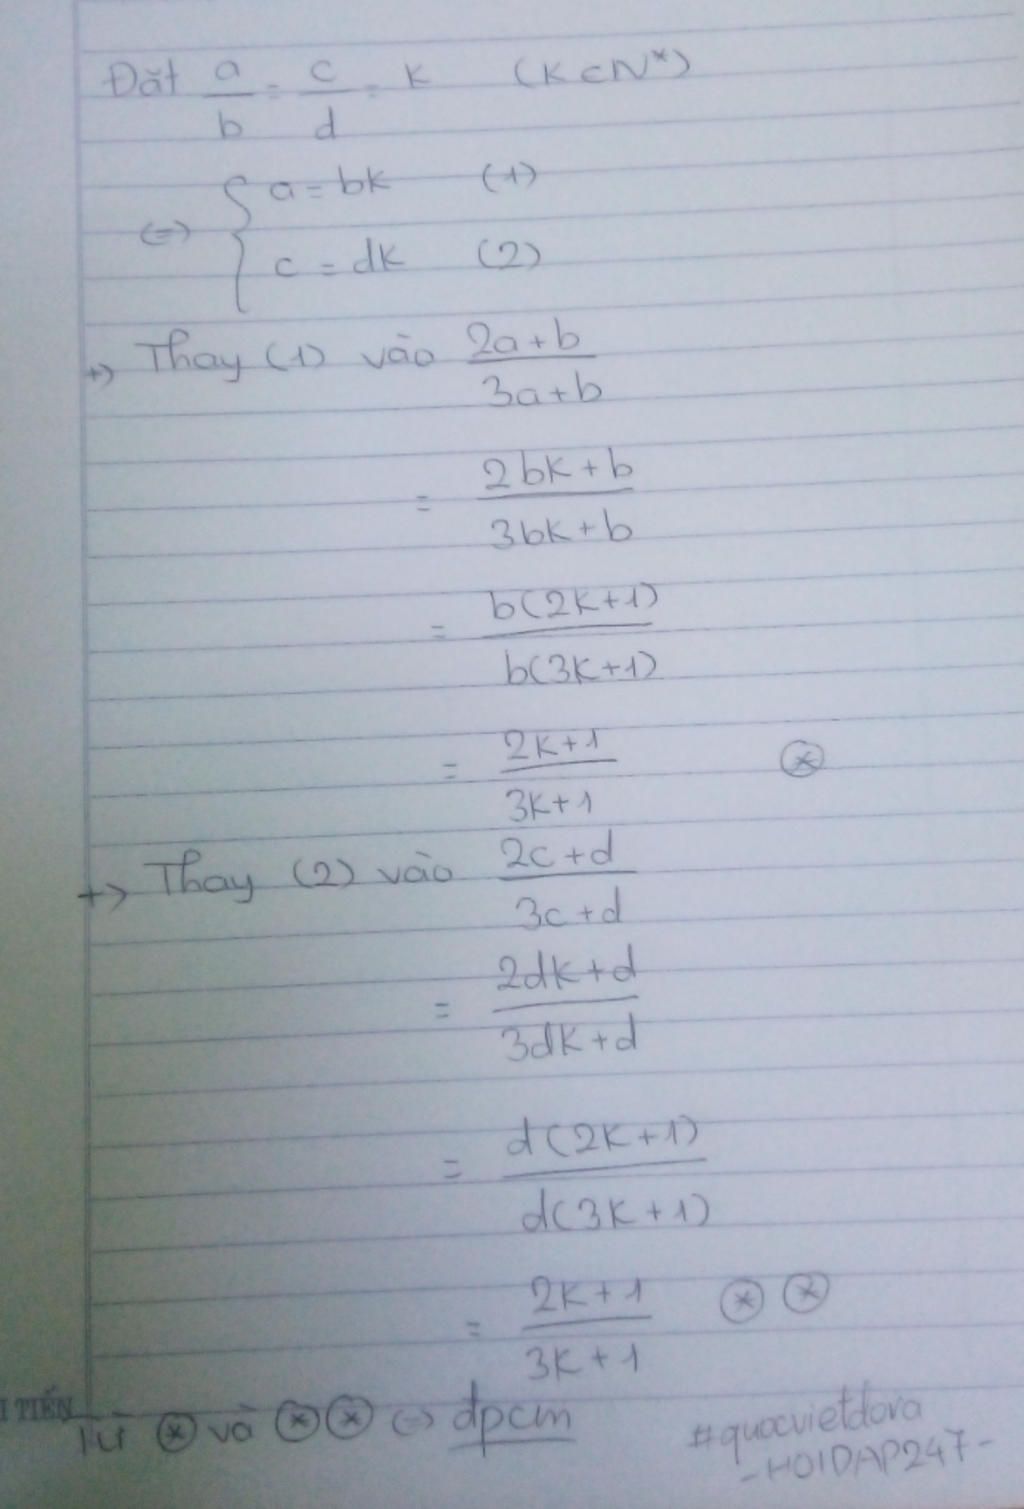 Đặt a/b = c/d = k (k ∈ N*)
⇔ { a = bk (1)
c = dk (2)
+) Thay (1) vào (2a+b)/(3a+b)
= (2bk+b)/(3bk+b)
= b(2k+1)/b(3k+1)
= (2k+1)/(3k+1) ⊛
+) Thay (2) vào (2c+d)/(3c+d)
= (2dk+d)/(3dk+d)
= d(2k+1)/d(3k+1)
= (2k+1)/(3k+1) ⊛ ⊛
I TIẾN
Từ ⊛ và ⊛⊛ ⇔ đpcm
#quocvietdora
-HOIDAP247-